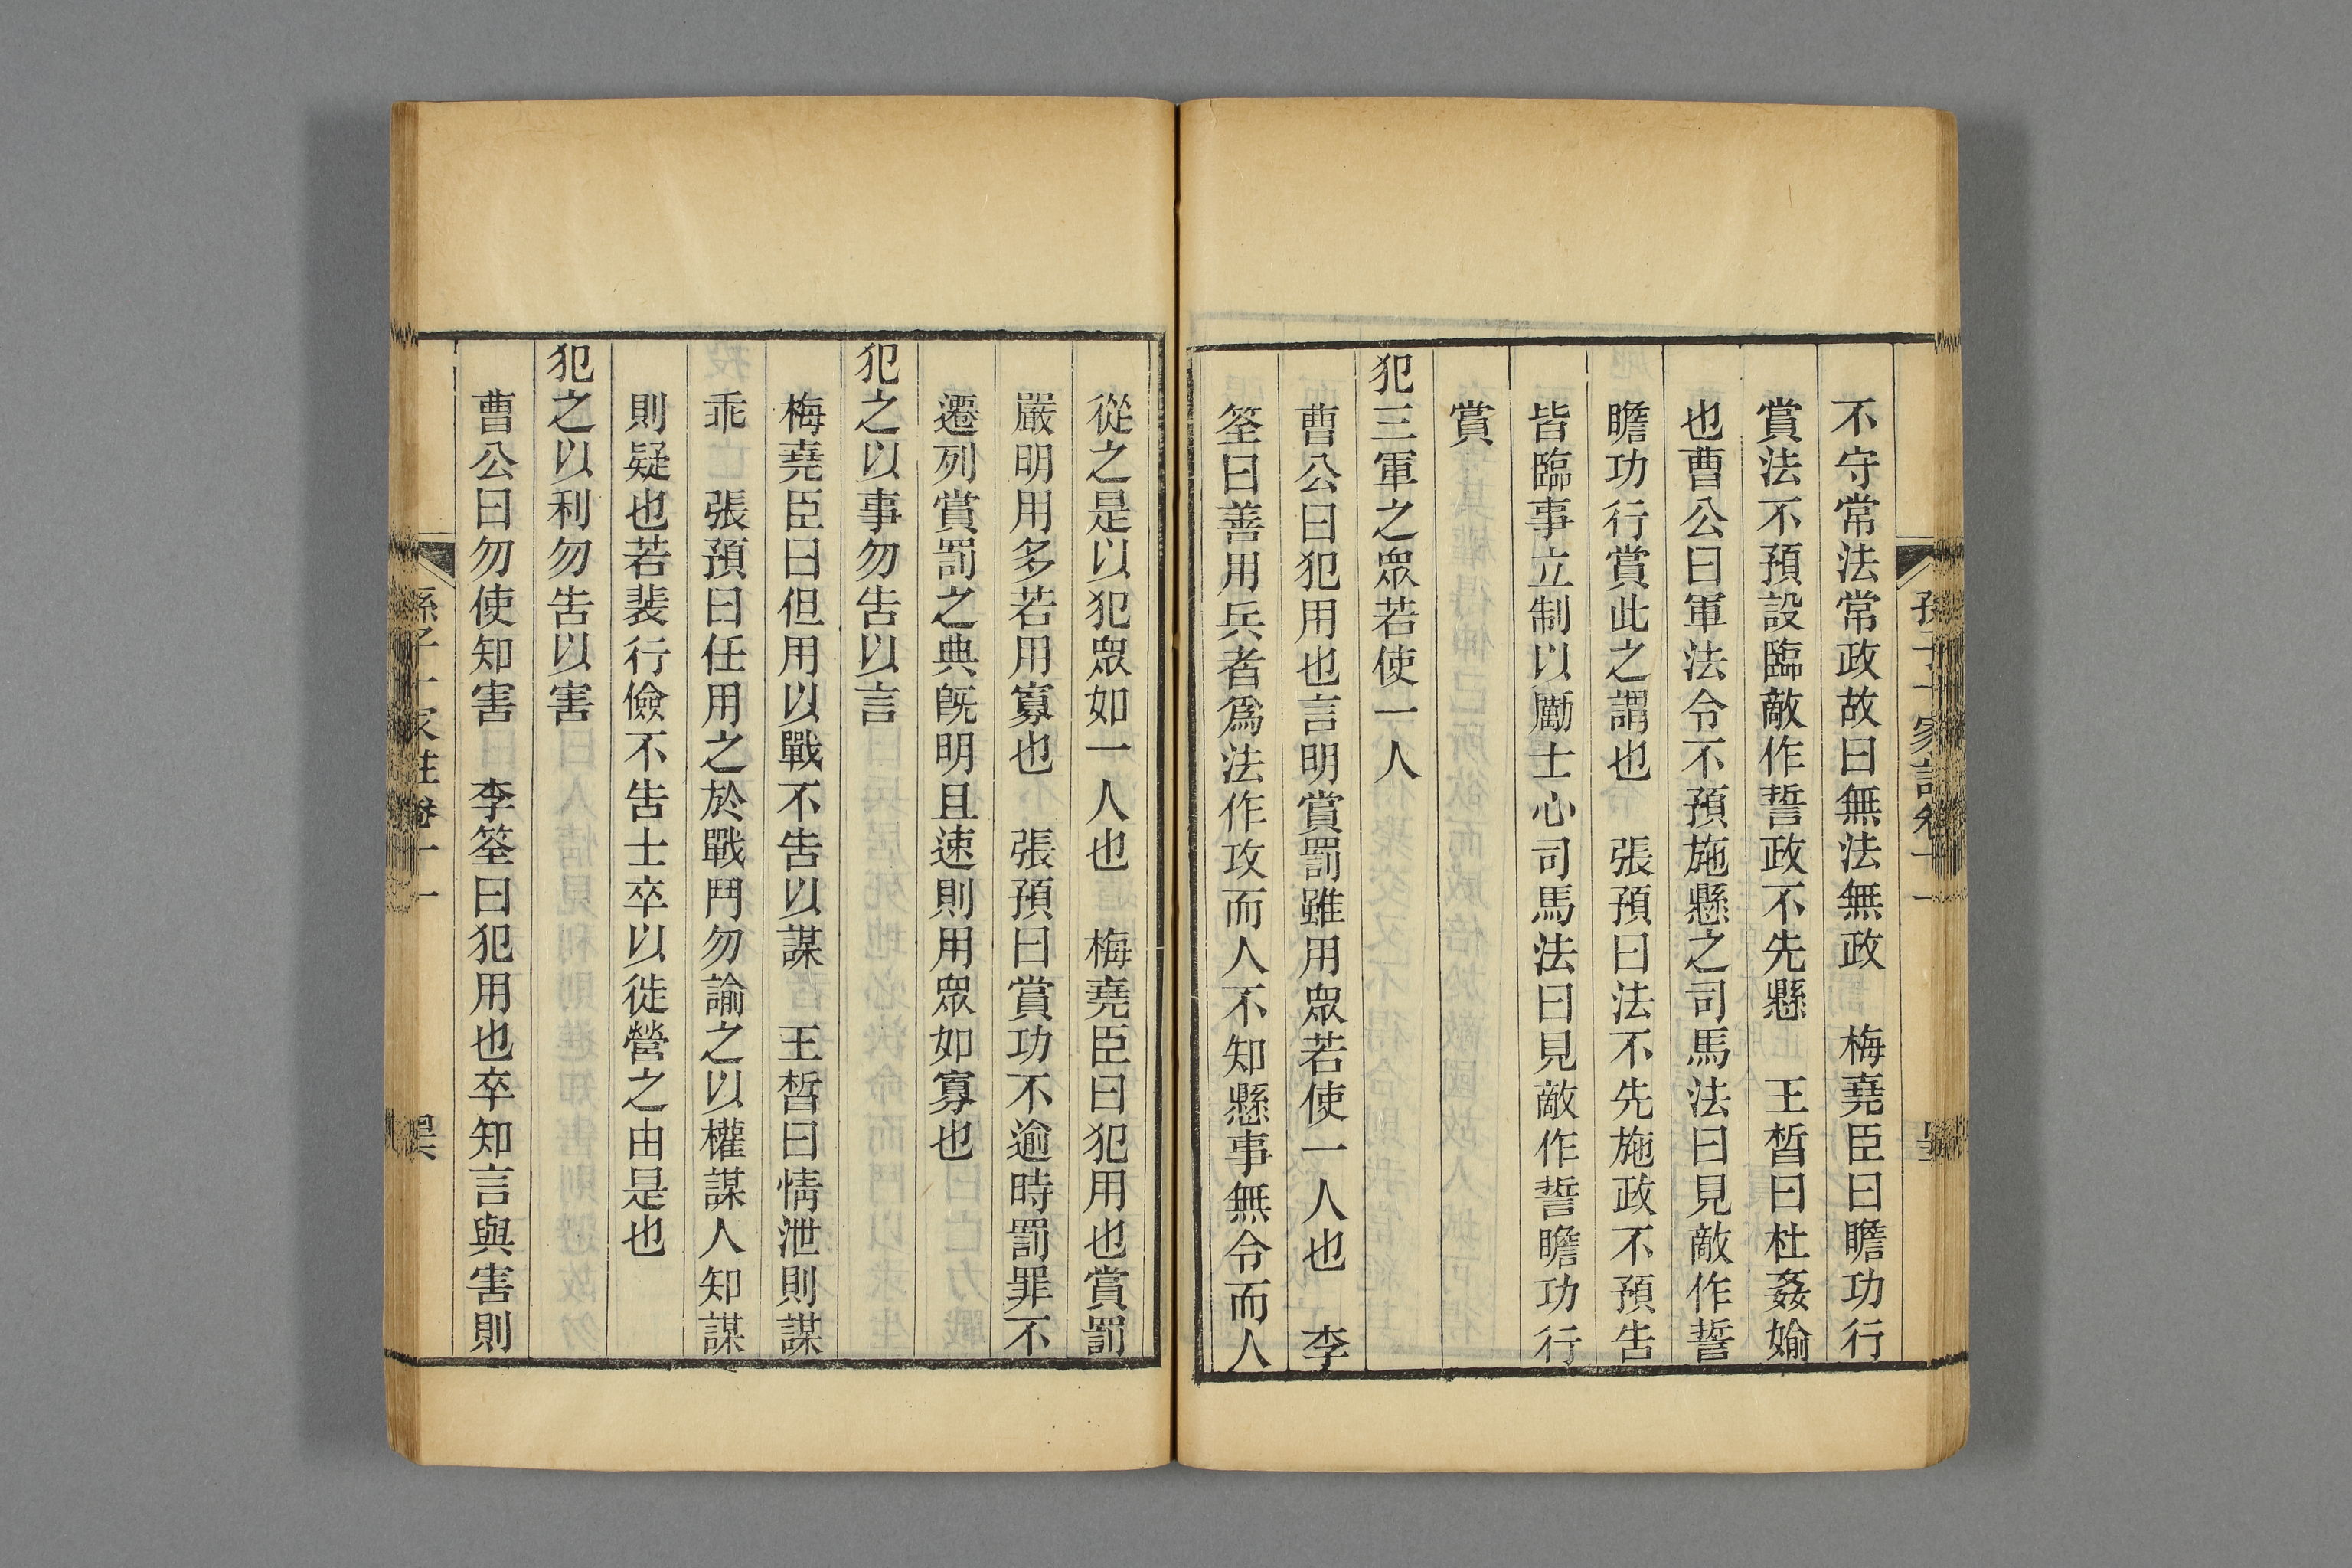 孫子十家註卷十一
不守常法常政故曰無法無政　梅堯臣曰瞻功行
賞法不預設臨敵作誓政不先懸　王晳曰杜姦媮
也曹公曰軍法令不預施懸之司馬法曰見敵作誓
瞻功行賞此之謂也　張預曰法不先施政不預告
皆臨事立制以勵士心司馬法曰見敵作誓瞻功行
賞
犯三軍之眾若使一人
曹公曰犯用也言明賞罰雖用眾若使一人也　李
筌曰善用兵者為法作攻而人不知懸事無令而人
從之是以犯眾如一人也　梅堯臣曰犯用也賞罰
嚴明用多若用寡也　張預曰賞功不逾時罰罪不
遷列賞罰之典旣明且速則用眾如寡也
犯之以事勿告以言
梅堯臣曰但用以戰不告以謀　王晳曰情泄則謀
乖　張預曰任用之於戰鬥勿諭之以權謀人知謀
則疑也若裴行儉不告士卒以徙營之由是也
犯之以利勿告以害
曹公曰勿使知害　李筌曰犯用也卒知言與害則
孫子十家註卷十一